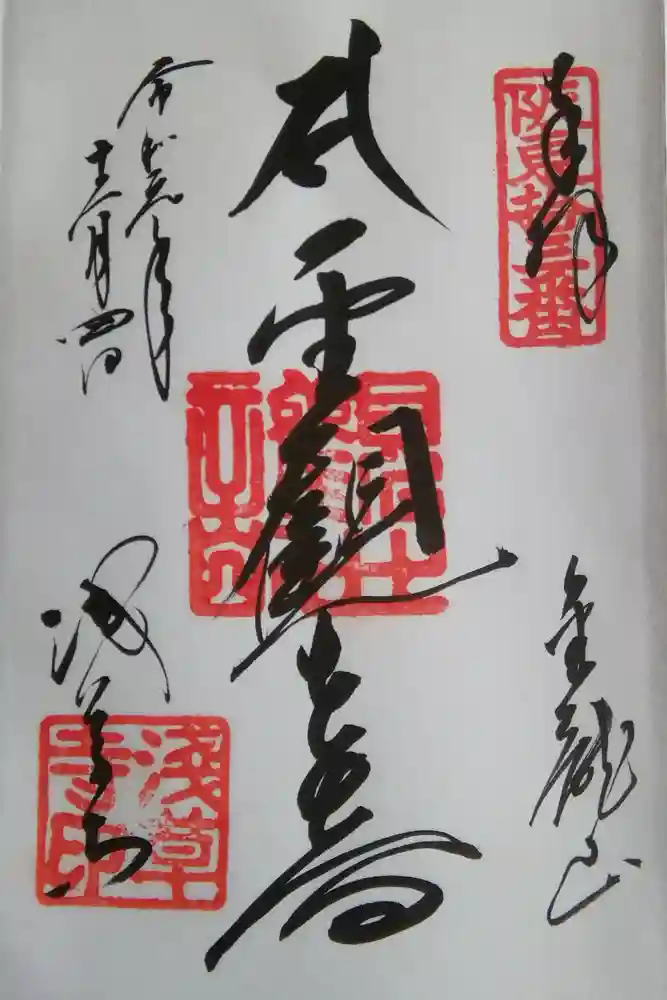 奉拝
阪東拾三番
金龍山
聖観世音
令和元年
十二月四日
浅草寺
淺草
寺印